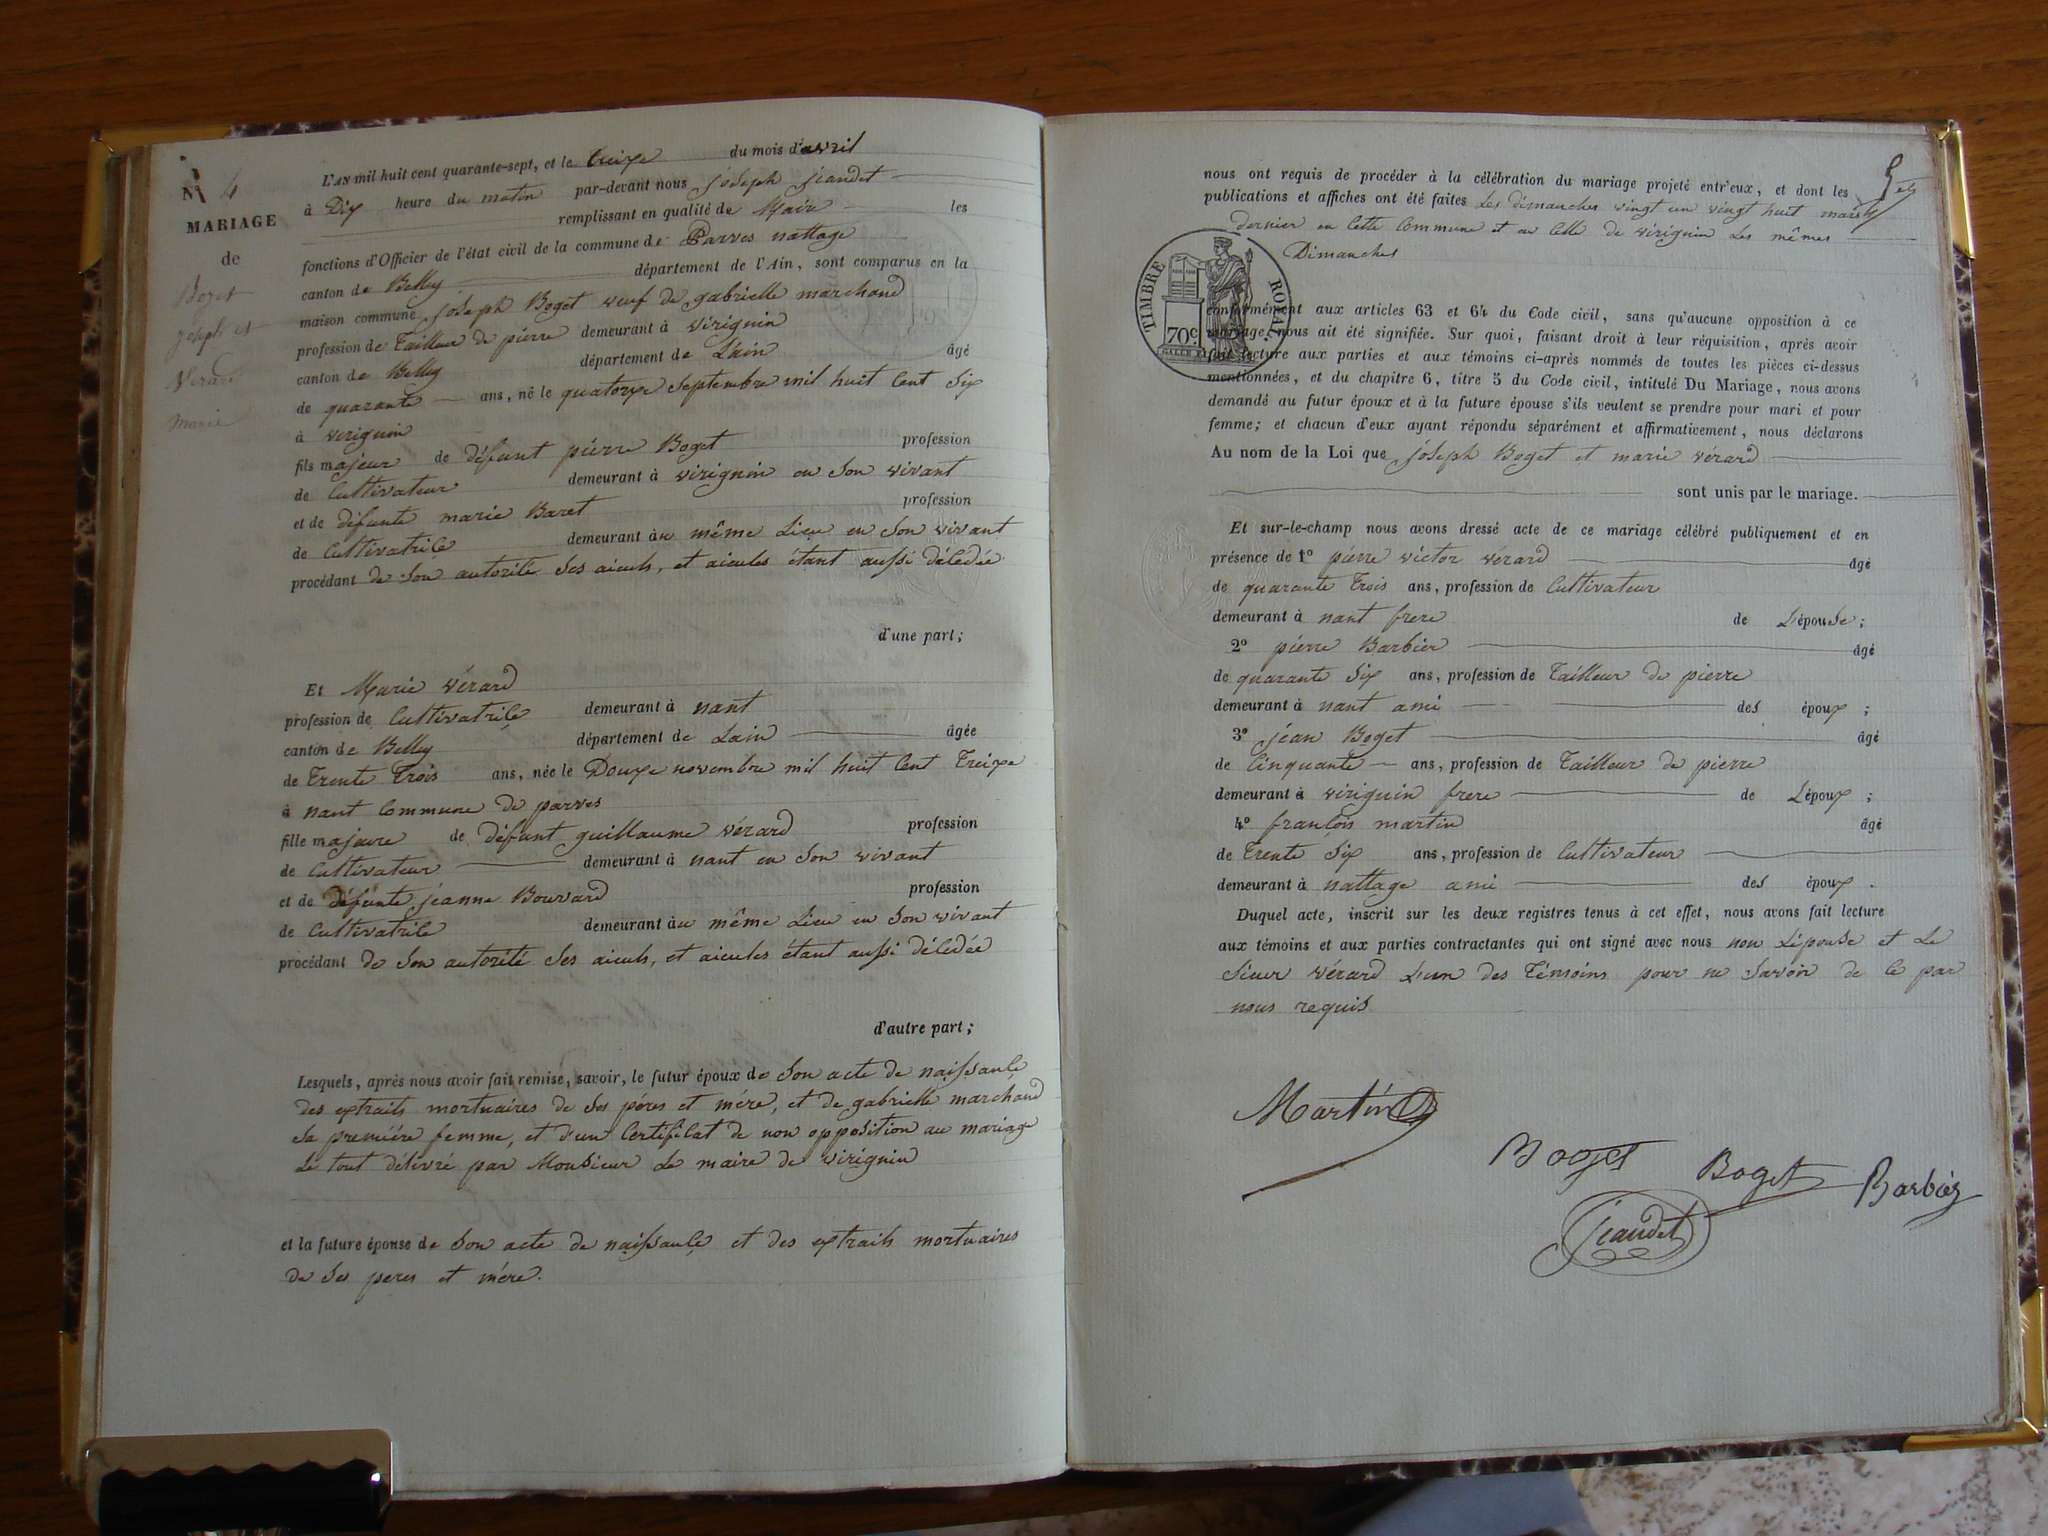 N 4
MARIAGE
de
Boget
joseph et
Verard
marie
L'AN mil huit cent quarante-sept, et le treize du mois d'avril
à Dix heure du matin par-devant nous joseph jeandet
remplissant en qualité de Maire les
fonctions d'Officier de l'état civil de la commune de Parves nattage
canton de Belley département de l'Ain, sont comparus en la
maison commune joseph Boget veuf de gabrielle marchand
profession de Tailleur de pierre demeurant à virignin
canton de Belley département de L'ain âgé
de quarante ans, né le quatorze septembre mil huit Cent Six
à virignin
fils majeur de défunt pierre Boget profession
de Cultivateur demeurant à virignin en Son vivant
et de défunte marie Baret profession
de Cultivatrice demeurant au même Lieu en Son vivant
procédant de Son autorité Ses aieuls, et aieules étant aussi décédée
d'une part;
Et Marie vérard
profession de Cultivatrice demeurant à nant
canton de Belley département de Lain âgée
de Trente Trois ans, née le Douze novembre mil huit Cent Treize
à nant Commune de parves
fille majeure de défunt guillaume vérard profession
de Cultivateur demeurant à nant en Son vivant
et de défunte jéanne Bouvard profession
de Cultivatrice demeurant au même Lieu en Son vivant
procédant de Son autorité Ses aieuls, et aieules étant aussi décédée
d'autre part;
Lesquels, après nous avoir fait remise, savoir, le futur époux de Son acte de naissance
des extraits mortuaires de Ses péres et mére, et de gabrielle marchand
Sa premiére femme, et d'un Certificat de non opposition au mariage
Le tout délivré par Monsieur Le maire de virignin
et la future épouse de Son acte de naissance et des extraits mortuaires
de Ses peres et mére.
5
nous ont requis de procéder à la célébration du mariage projeté entr'eux, et dont les
publications et affiches ont été faites Les dimanches vingt un vingt huit mars
dernier en Cette Commune et en Celle de virignin Les mêmes
Dimanches
TIMBRE ROYAL
70c
conformément aux articles 63 et 64 du Code civil, sans qu'aucune opposition à ce
mariage nous ait été signifiée. Sur quoi, faisant droit à leur réquisition, après avoir
fait lecture aux parties et aux témoins ci-après nommés de toutes les pièces ci-dessus
mentionnées, et du chapitre 6, titre 5 du Code civil, intitulé Du Mariage, nous avons
demandé au futur époux et à la future épouse s'ils veulent se prendre pour mari et pour
femme; et chacun d'eux ayant répondu séparément et affirmativement, nous déclarons
Au nom de la Loi que joseph Boget et marie vérard
sont unis par le mariage.
Et sur-le-champ nous avons dressé acte de ce mariage célébré publiquement et en
présence de 1º pierre victor vérard âgé
de quarante Trois ans, profession de Cultivateur
demeurant à nant frere de L'épouse;
2º pierre Barbier âgé
de quarante Six ans, profession de Tailleur de pierre
demeurant à nant ami des époux;
3º jéan Boget âgé
de Cinquante ans, profession de Tailleur de pierre
demeurant à virignin frere de L'époux;
4º françois martin âgé
de Trente Six ans, profession de Cultivateur
demeurant à nattage ami des époux.
Duquel acte, inscrit sur les deux registres tenus à cet effet, nous avons fait lecture
aux témoins et aux parties contractantes qui ont signé avec nous non L'épouse et Le
Sieur vérard L'un des Témoins pour ne Savoir de Ce par
nous requis
Martin
Boget
Boget
Barbier
jeandet